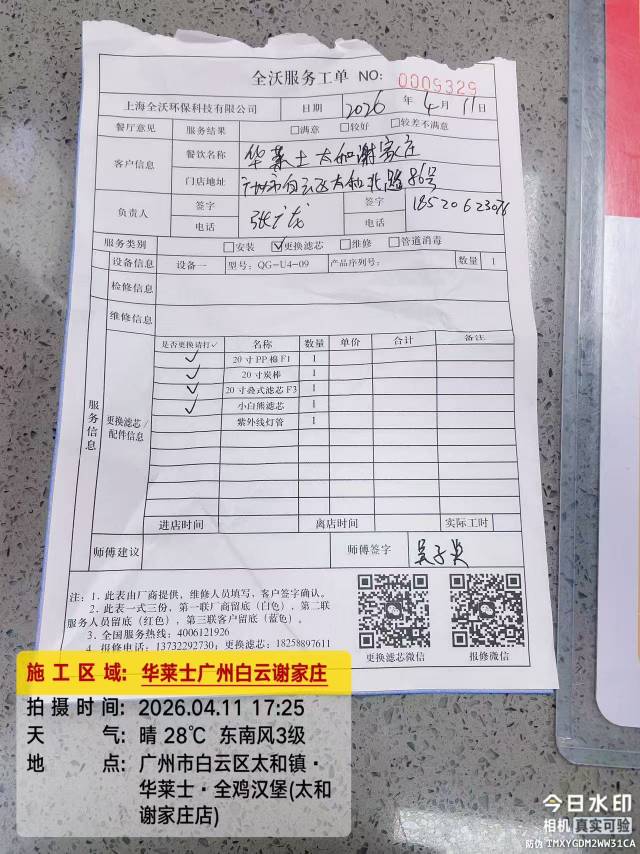 全沃服务工单 NO: 0005329
上海全沃环保科技有限公司 日期 2026 年 4 月 11 日
餐厅意见 服务结果 □满意 □较好 □较差不满意
客户信息 餐饮名称 华莱士太和谢家庄
门店地址 广州市白云区太和北路86号
负责人 签字 签字
电话 张广龙 电话 18520623076
服务类别 □安装 ☑更换滤芯 □维修 □管道消毒
设备信息 设备一 型号: QG-U4-09 产品序列号: 数量 1
检修信息
维修信息
服务信息
更换滤芯/配件信息
是否更换请打✓ 名称 数量 单价 合计 备注
✓ 20寸PP棉F1 1
✓ 20寸炭棒 1
✓ 20寸叠式滤芯F3 1
✓ 小白熊滤芯 1
紫外线灯管 1
进店时间 离店时间 实际工时
师傅建议 师傅签字
注: 1. 此表由厂商提供, 维修人员填写, 客户签字确认。
2. 此表一式三份, 第一联厂商留底(白色), 第二联
服务人员留底(红色), 第三联客户留底(蓝色)。
3. 全国服务热线: 4006121926
4. 报修电话: 13732292730; 更换滤芯: 18258897611
更换滤芯微信 报修微信
施工区域: 华莱士广州白云谢家庄
拍摄时间: 2026.04.11 17:25
天气: 晴 28℃ 东南风3级
地点: 广州市白云区太和镇·
华莱士·全鸡汉堡(太和
谢家庄店)
今日水印
相机 真实可验
防伪 TMXYGDM2WW31CA